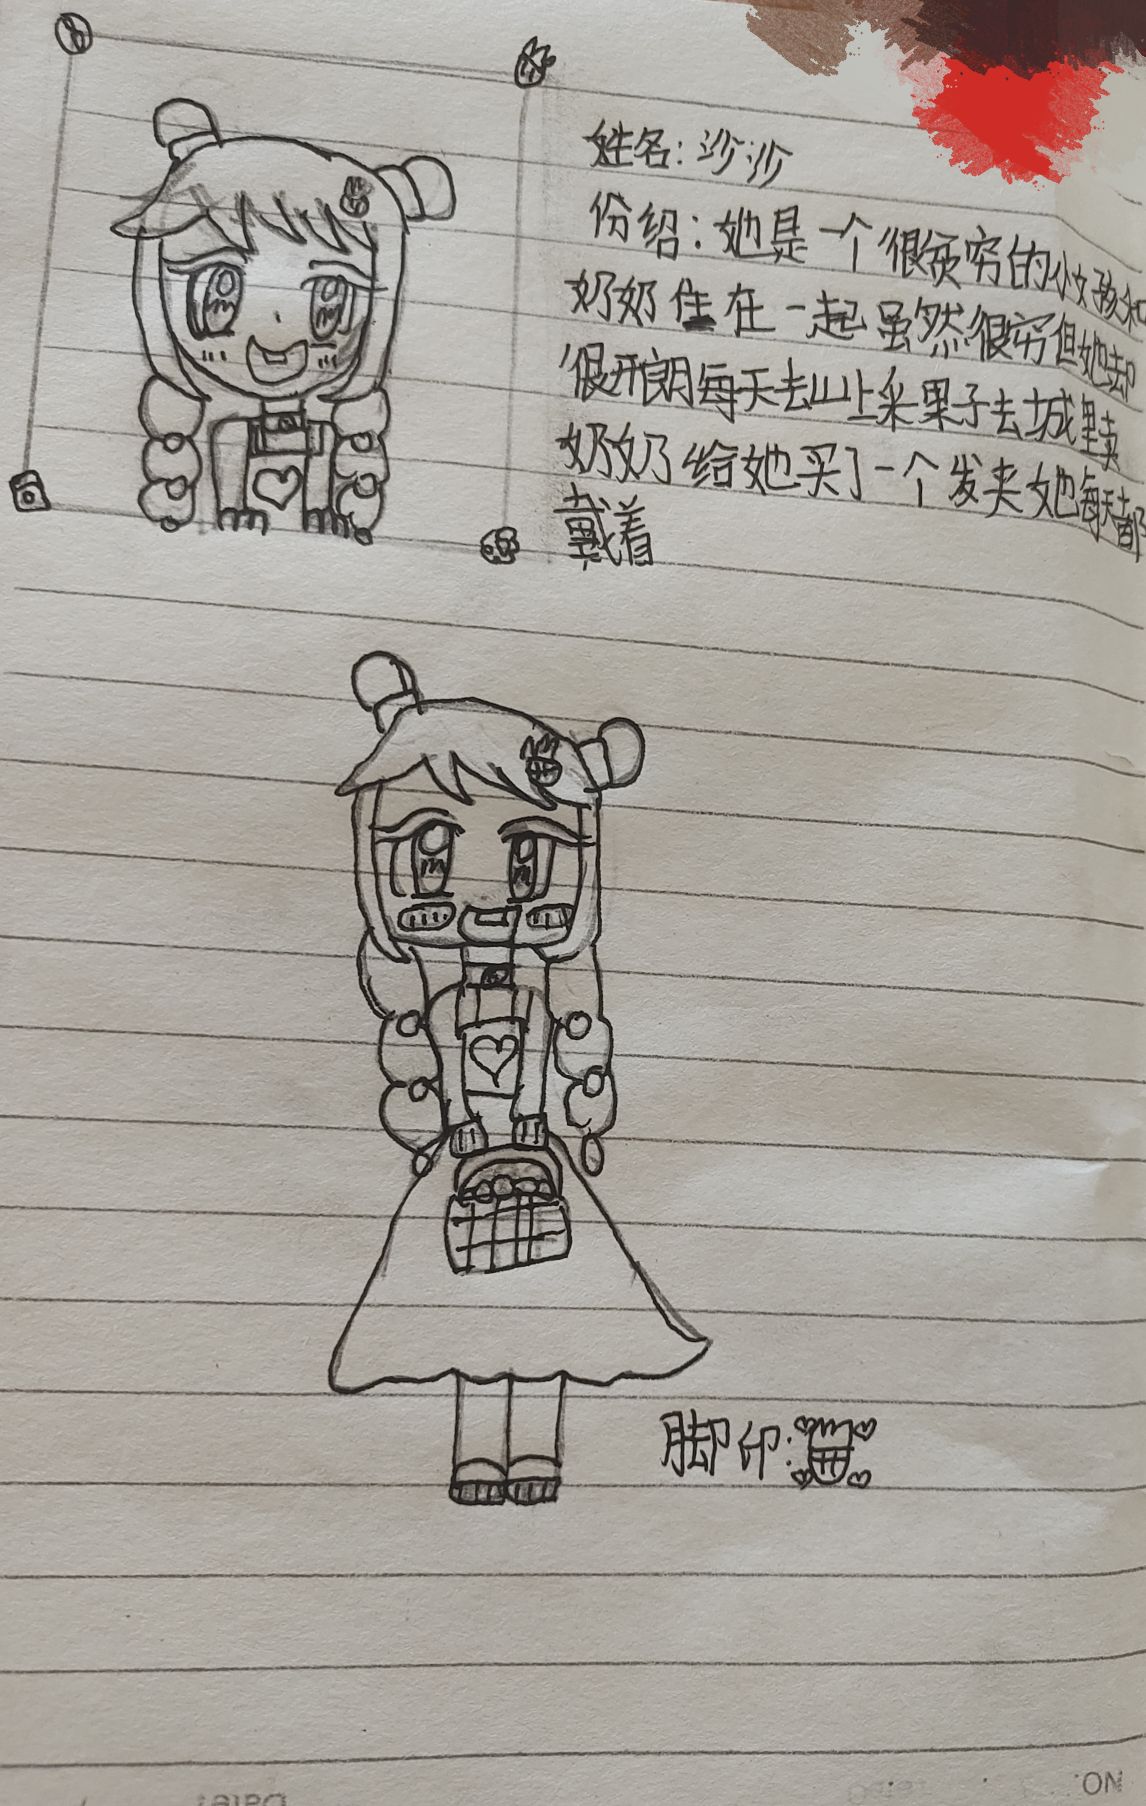 姓名:沙沙
份绍:她是一个很贫穷的小女孩和
奶奶住在一起虽然很穷但她却
很开朗每天去山上采果子去城里卖
奶奶给她买了一个发夹她每天都
戴着
脚印:
NO
Date